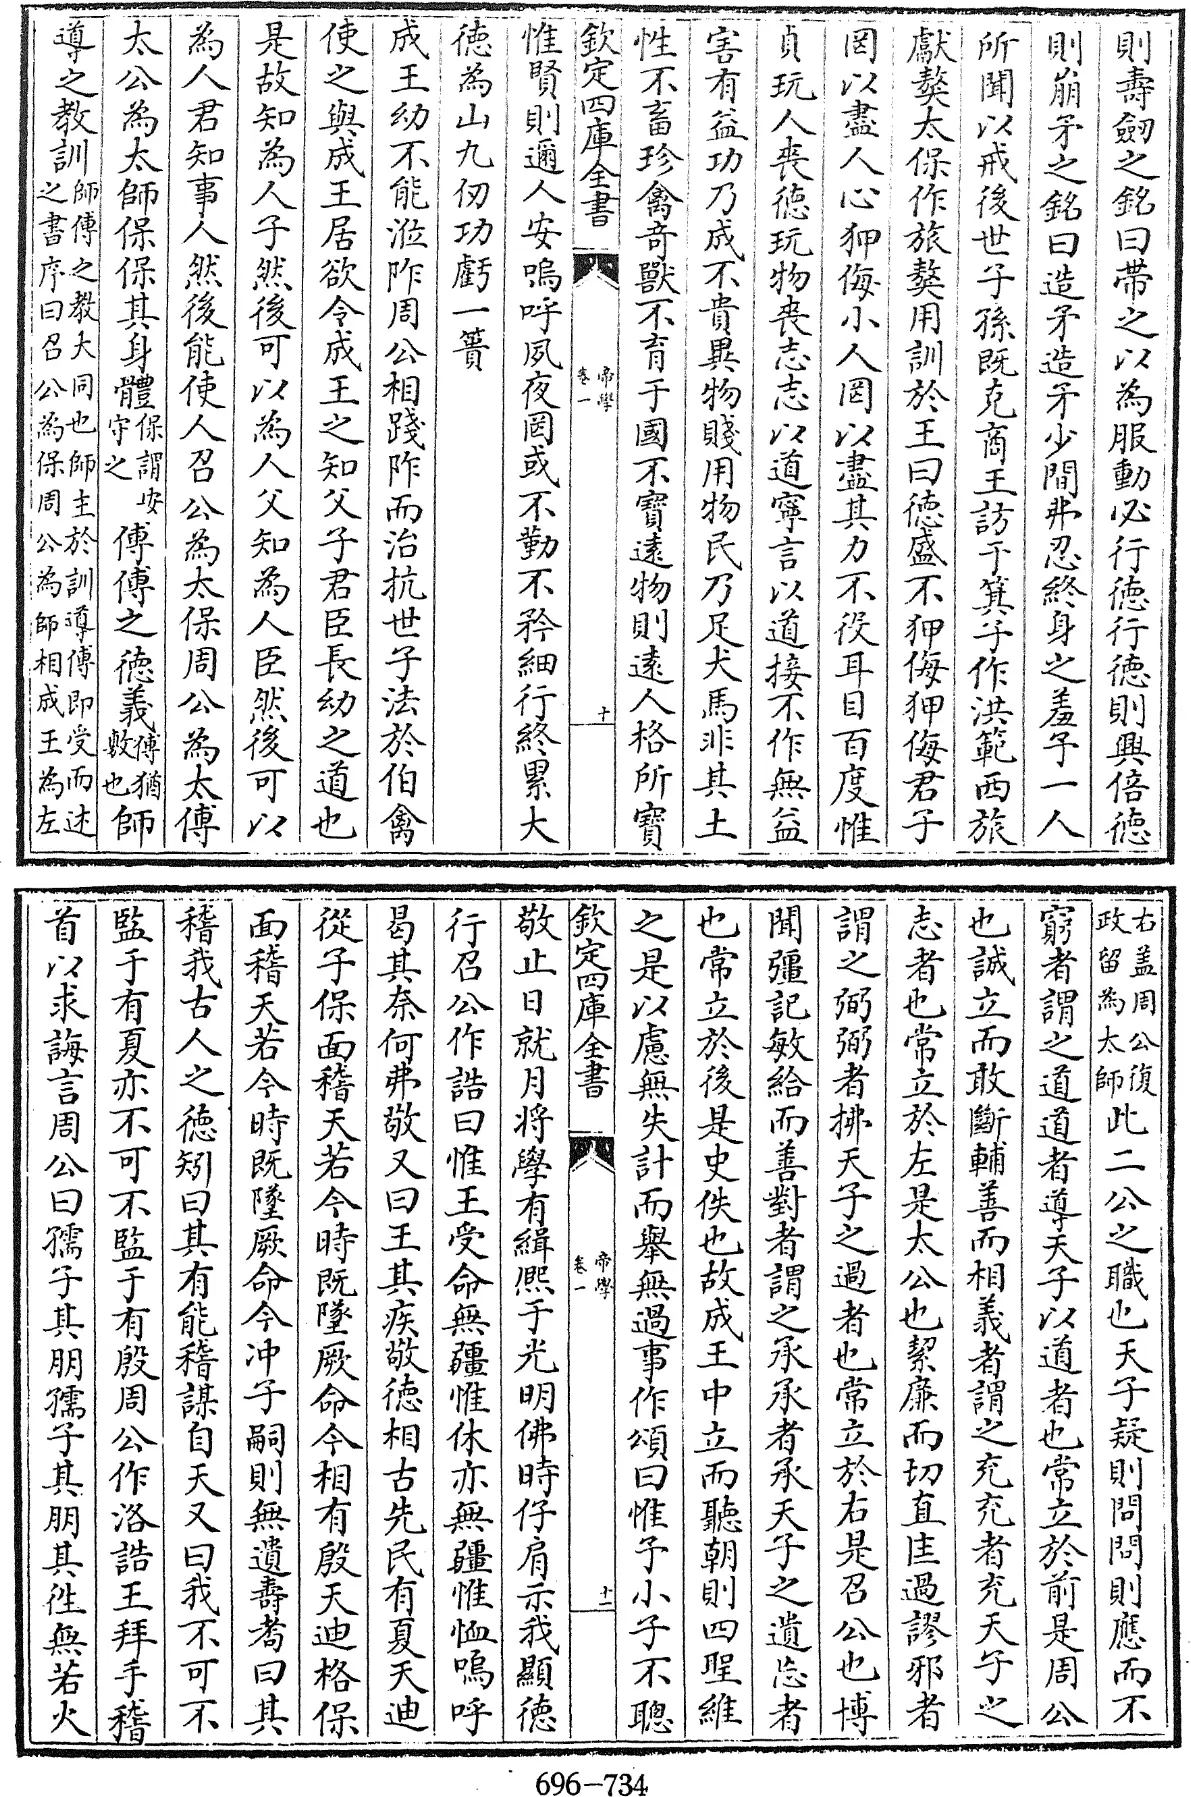 則壽劒之銘曰帶之以為服動必行徳行徳則興倍徳
則崩矛之銘曰造矛造矛少間弗忍終身之羞予一人
所聞以戒後世子孫既克商王訪于箕子作洪範西旅
獻獒太保作旅獒用訓於王曰徳盛不狎侮狎侮君子
罔以盡人心狎侮小人罔以盡其力不役耳目百度惟
貞玩人喪徳玩物喪志志以道寧言以道接不作無益
害有益功乃成不貴異物賤用物民乃足犬馬非其土
性不畜珍禽竒獸不育于國不寶逺物則逺人格所寶
欽定四庫全書
帝學
卷一
十
惟賢則邇人安嗚呼夙夜罔或不勤不矜細行終累大
徳為山九仞功虧一簣
成王幼不能涖阼周公相踐阼而治抗世子法於伯禽
使之與成王居欲令成王之知父子君臣長幼之道也
是故知為人子然後可以為人父知為人臣然後可以
為人君知事人然後能使人召公為太保周公為太傅
太公為太師保保其身體保謂安守之傅傅之徳義傅猶敷也師
導之教訓師傅之教大同也師主於訓導傅即受而述之書序曰召公為保周公為師相成王為左
右蓋周公復政留為太師此二公之職也天子疑則問問則應而不
窮者謂之道道者導天子以道者也常立於前是周公
也誠立而敢斷輔善而相義者謂之充充者充天子之
志者也常立於左是太公也絜廉而切直匡過謬邪者
謂之弼弼者拂天子之過者也常立於右是召公也博
聞彊記敏給而善對者謂之承承者承天子之遺忘者
也常立於後是史佚也故成王中立而聽朝則四聖維
之是以慮無失計而舉無過事作頌曰惟予小子不聰
欽定四庫全書
帝學
卷一
十一
敬止日就月將學有緝熙于光明佛時仔肩示我顯徳
行召公作誥曰惟王受命無疆惟休亦無疆惟恤嗚呼
曷其奈何弗敬又曰王其疾敬徳相古先民有夏天迪
從子保面稽天若今時既墜厥命今相有殷天迪格保
面稽天若今時既墜厥命今冲子嗣則無遺壽耉曰其
稽我古人之徳矧曰其有能稽謀自天又曰我不可不
監于有夏亦不可不監于有殷周公作洛誥王拜手稽
首以求誨言周公曰孺子其朋孺子其朋其徃無若火
696-734